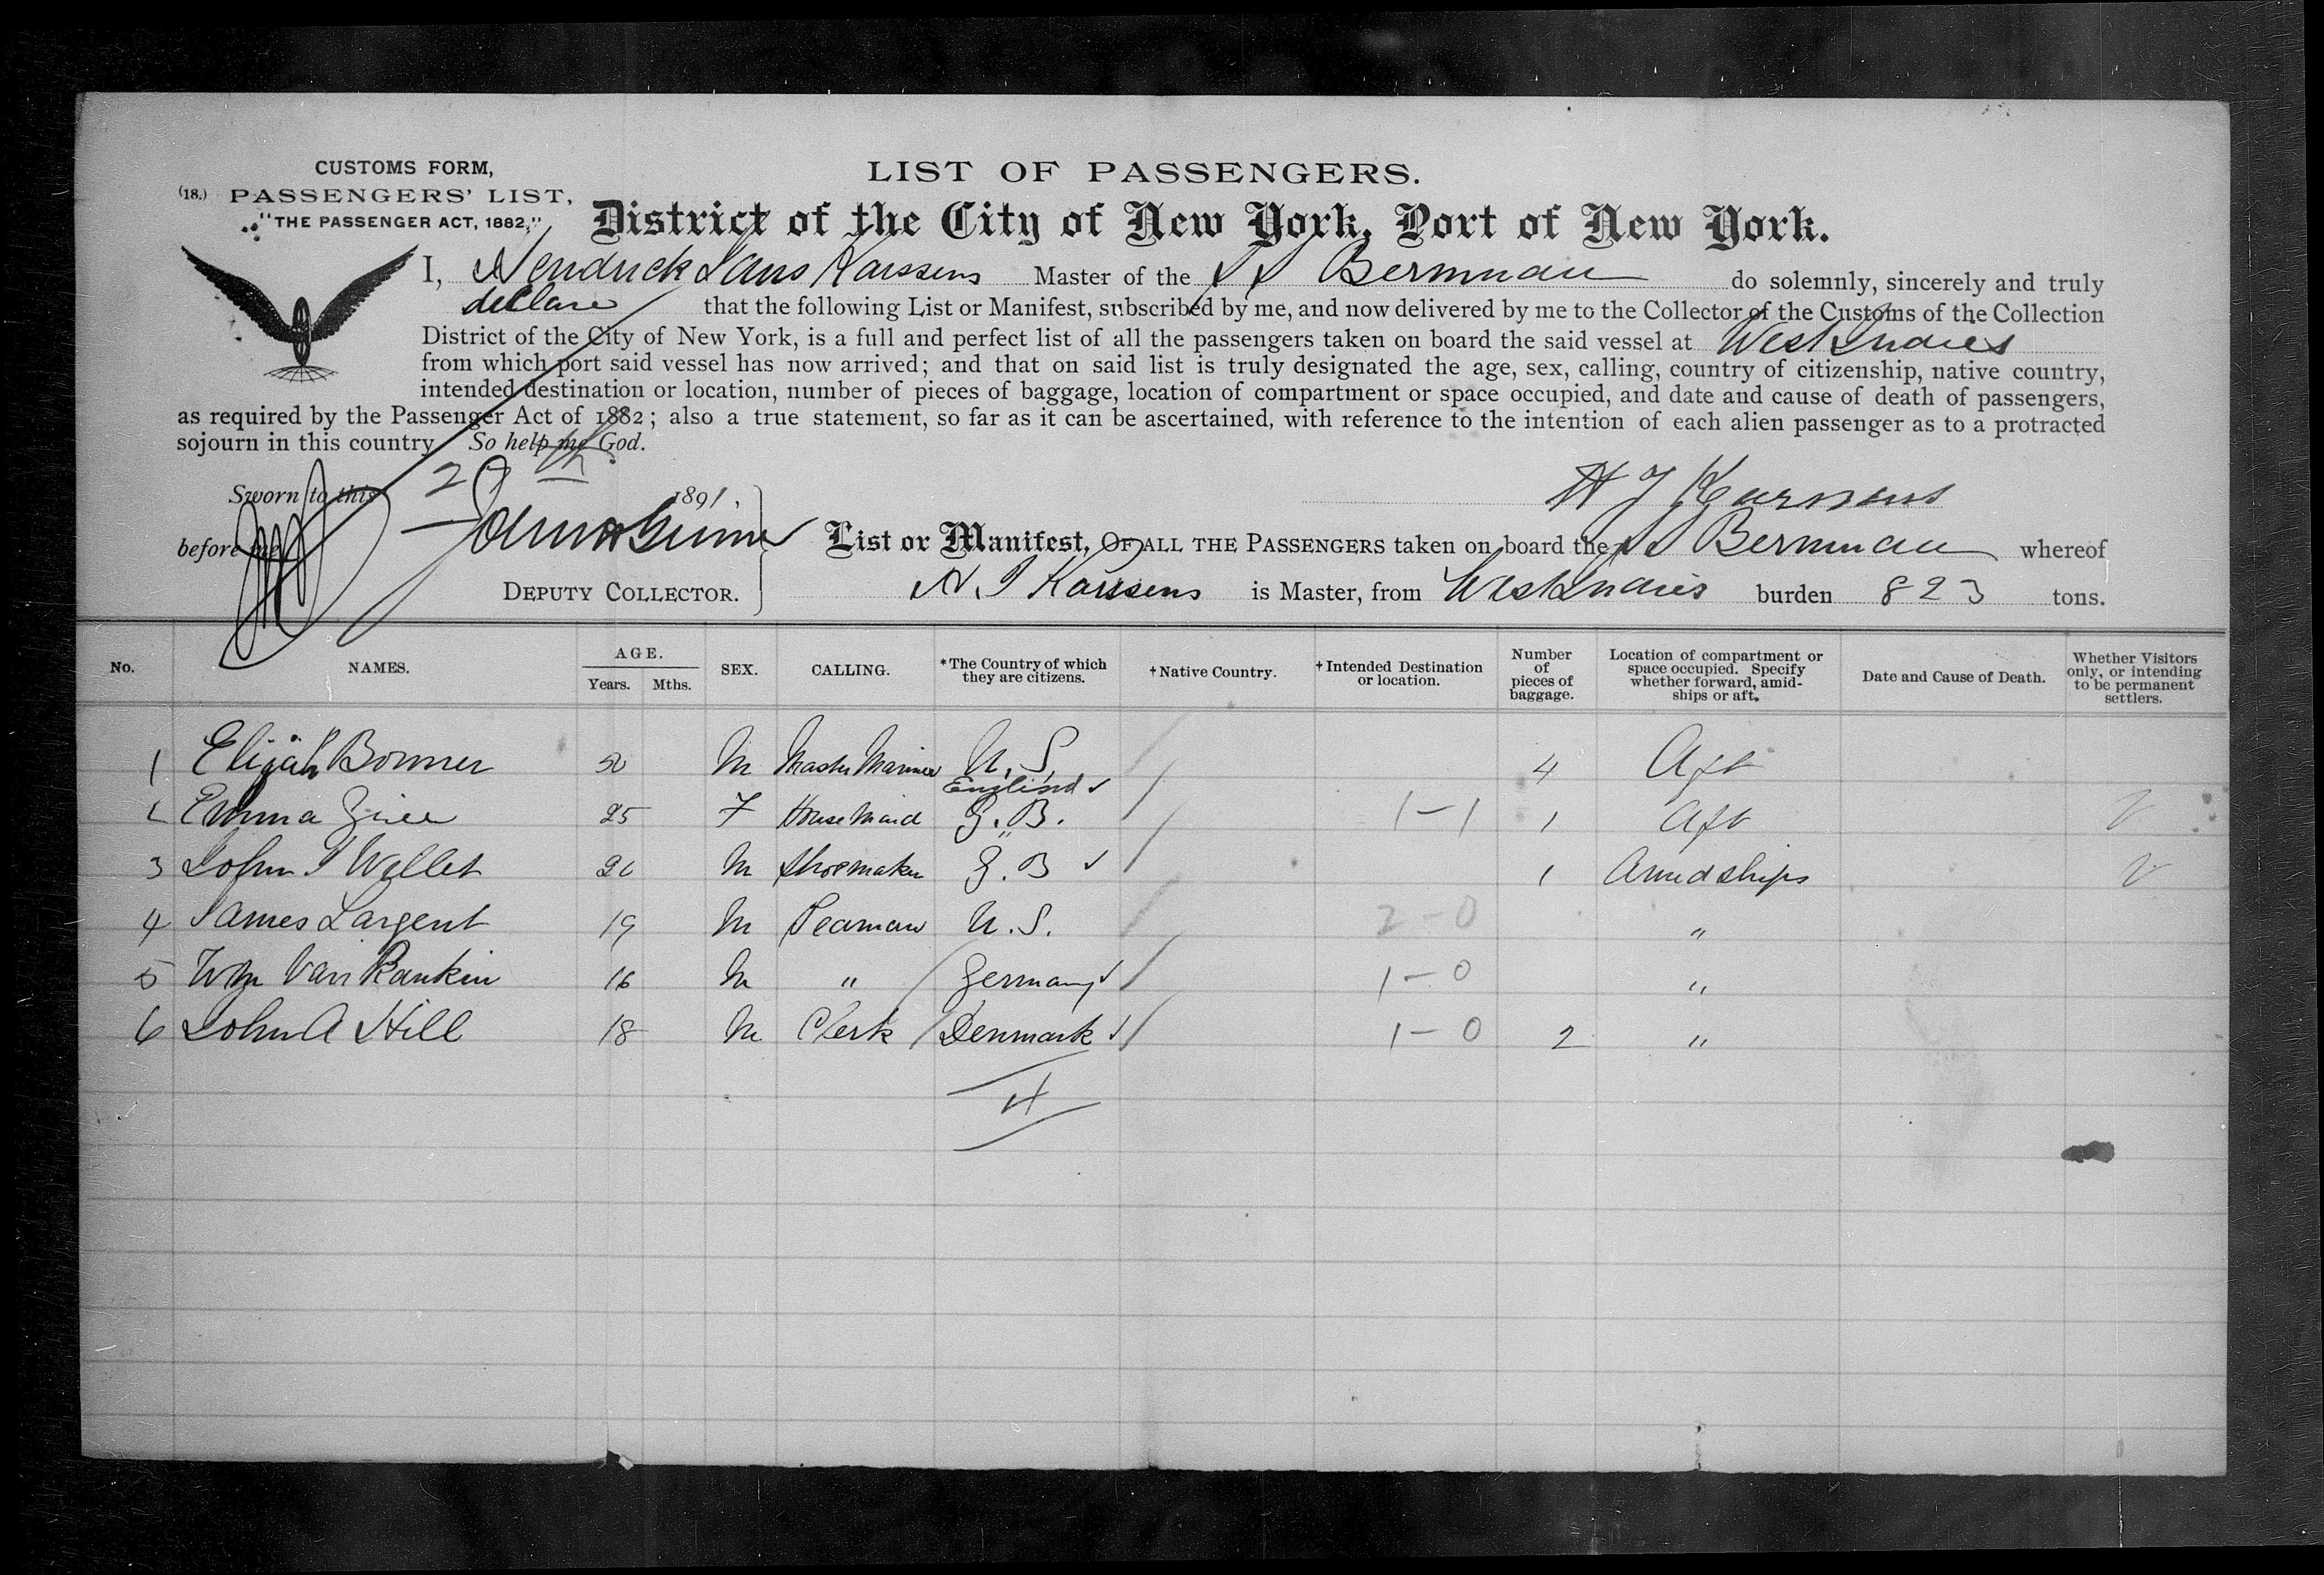 CUSTOMS FORM,
(18.) PASSENGERS' LIST,
"THE PASSENGER ACT, 1882,"
LIST OF PASSENGERS.
District of the City of New York, Port of New York.
I, Hendrick Jans Karssens Master of the SS Bermuda do solemnly, sincerely and truly
declare that the following List or Manifest, subscribed by me, and now delivered by me to the Collector of the Customs of the Collection
District of the City of New York, is a full and perfect list of all the passengers taken on board the said vessel at West Indies
from which port said vessel has now arrived; and that on said list is truly designated the age, sex, calling, country of citizenship, native country,
intended destination or location, number of pieces of baggage, location of compartment or space occupied, and date and cause of death of passengers,
as required by the Passenger Act of 1882; also a true statement, so far as it can be ascertained, with reference to the intention of each alien passenger as to a protracted
sojourn in this country. So help me God.
Sworn to this 29th 1891.
before me
DEPUTY COLLECTOR.
H J Karssens
List or Manifest, OF ALL THE PASSENGERS taken on board the SS Bermuda whereof
H. J Karssens is Master, from West Indies burden 823 tons.
No. NAMES. AGE. Years. Mths. SEX. CALLING. *The Country of which they are citizens. †Native Country. †Intended Destination or location. Number of pieces of baggage. Location of compartment or space occupied. Specify whether forward, amidships or aft. Date and Cause of Death. Whether Visitors only, or intending to be permanent settlers.
1 Elijah Bonner 50 M Master Mariner U.S. 4 Aft
England ✓
2 Emma 25 F House Maid G.B. 1-1 1 Aft
3 John J Willet 26 M Shoemaker G.B ✓ 1 Amidships
4 James Largent 19 M Seaman U.S. 2-0 "
5 Wm Van Rankin 16 M " Germany ✓ 1-0 "
6 John A Hill 18 M Clerk Denmark ✓ 1-0 2 "
4